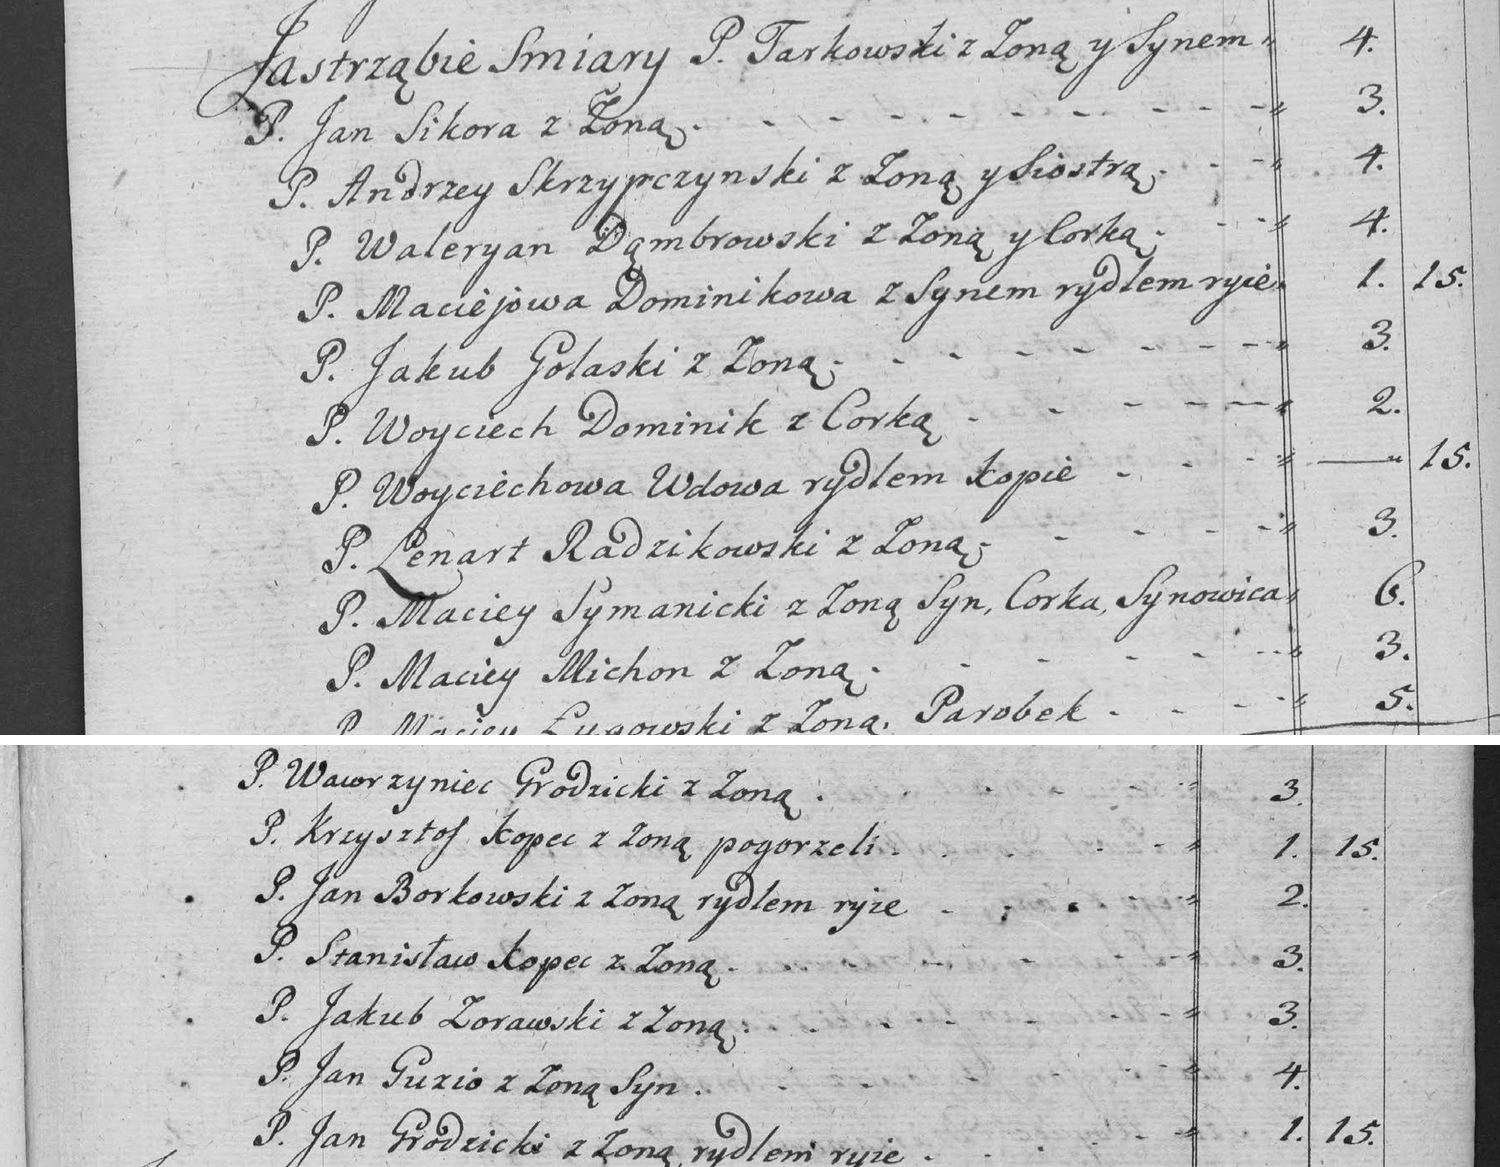 Jastrząbie Smiary P. Tarkowski z Zoną y Synem 4.
P. Jan Sikora z Zoną. 3.
P. Andrzey Skrzypczynski z Zoną y Siostrą. 4.
P. Waleryan Dąmbrowski z Zoną y Corką. 4.
P. Maciejowa Dominikowa z Synem rydlem ryie 1. 15.
P. Jakub Golaski z Zoną. 3.
P. Woyciech Dominik z Corką. 2.
P. Woyciechowa Wdowa rydlem kopie — 15.
P. Lenart Radzikowski z Zoną. 3.
P. Maciey Symanicki z Zoną Syn, Corka, Synowica 6.
P. Maciey Michon z Zoną. 3.
P. Maciey Ługowski z Zoną, Parobek. 5.
P. Wawrzyniec Grodzicki z Zoną. 3.
P. Krzysztof Kopec z Zoną pogorzeli. 1. 15.
P. Jan Borkowski z Zoną rydlem ryie 2.
P. Stanisław Kopec z Zoną. 3.
P. Jakub Zorawski z Zoną. 3.
P. Jan Guzio z Zoną Syn. 4.
P. Jan Grodzicki z Zoną rydlem ryie. 1. 15.